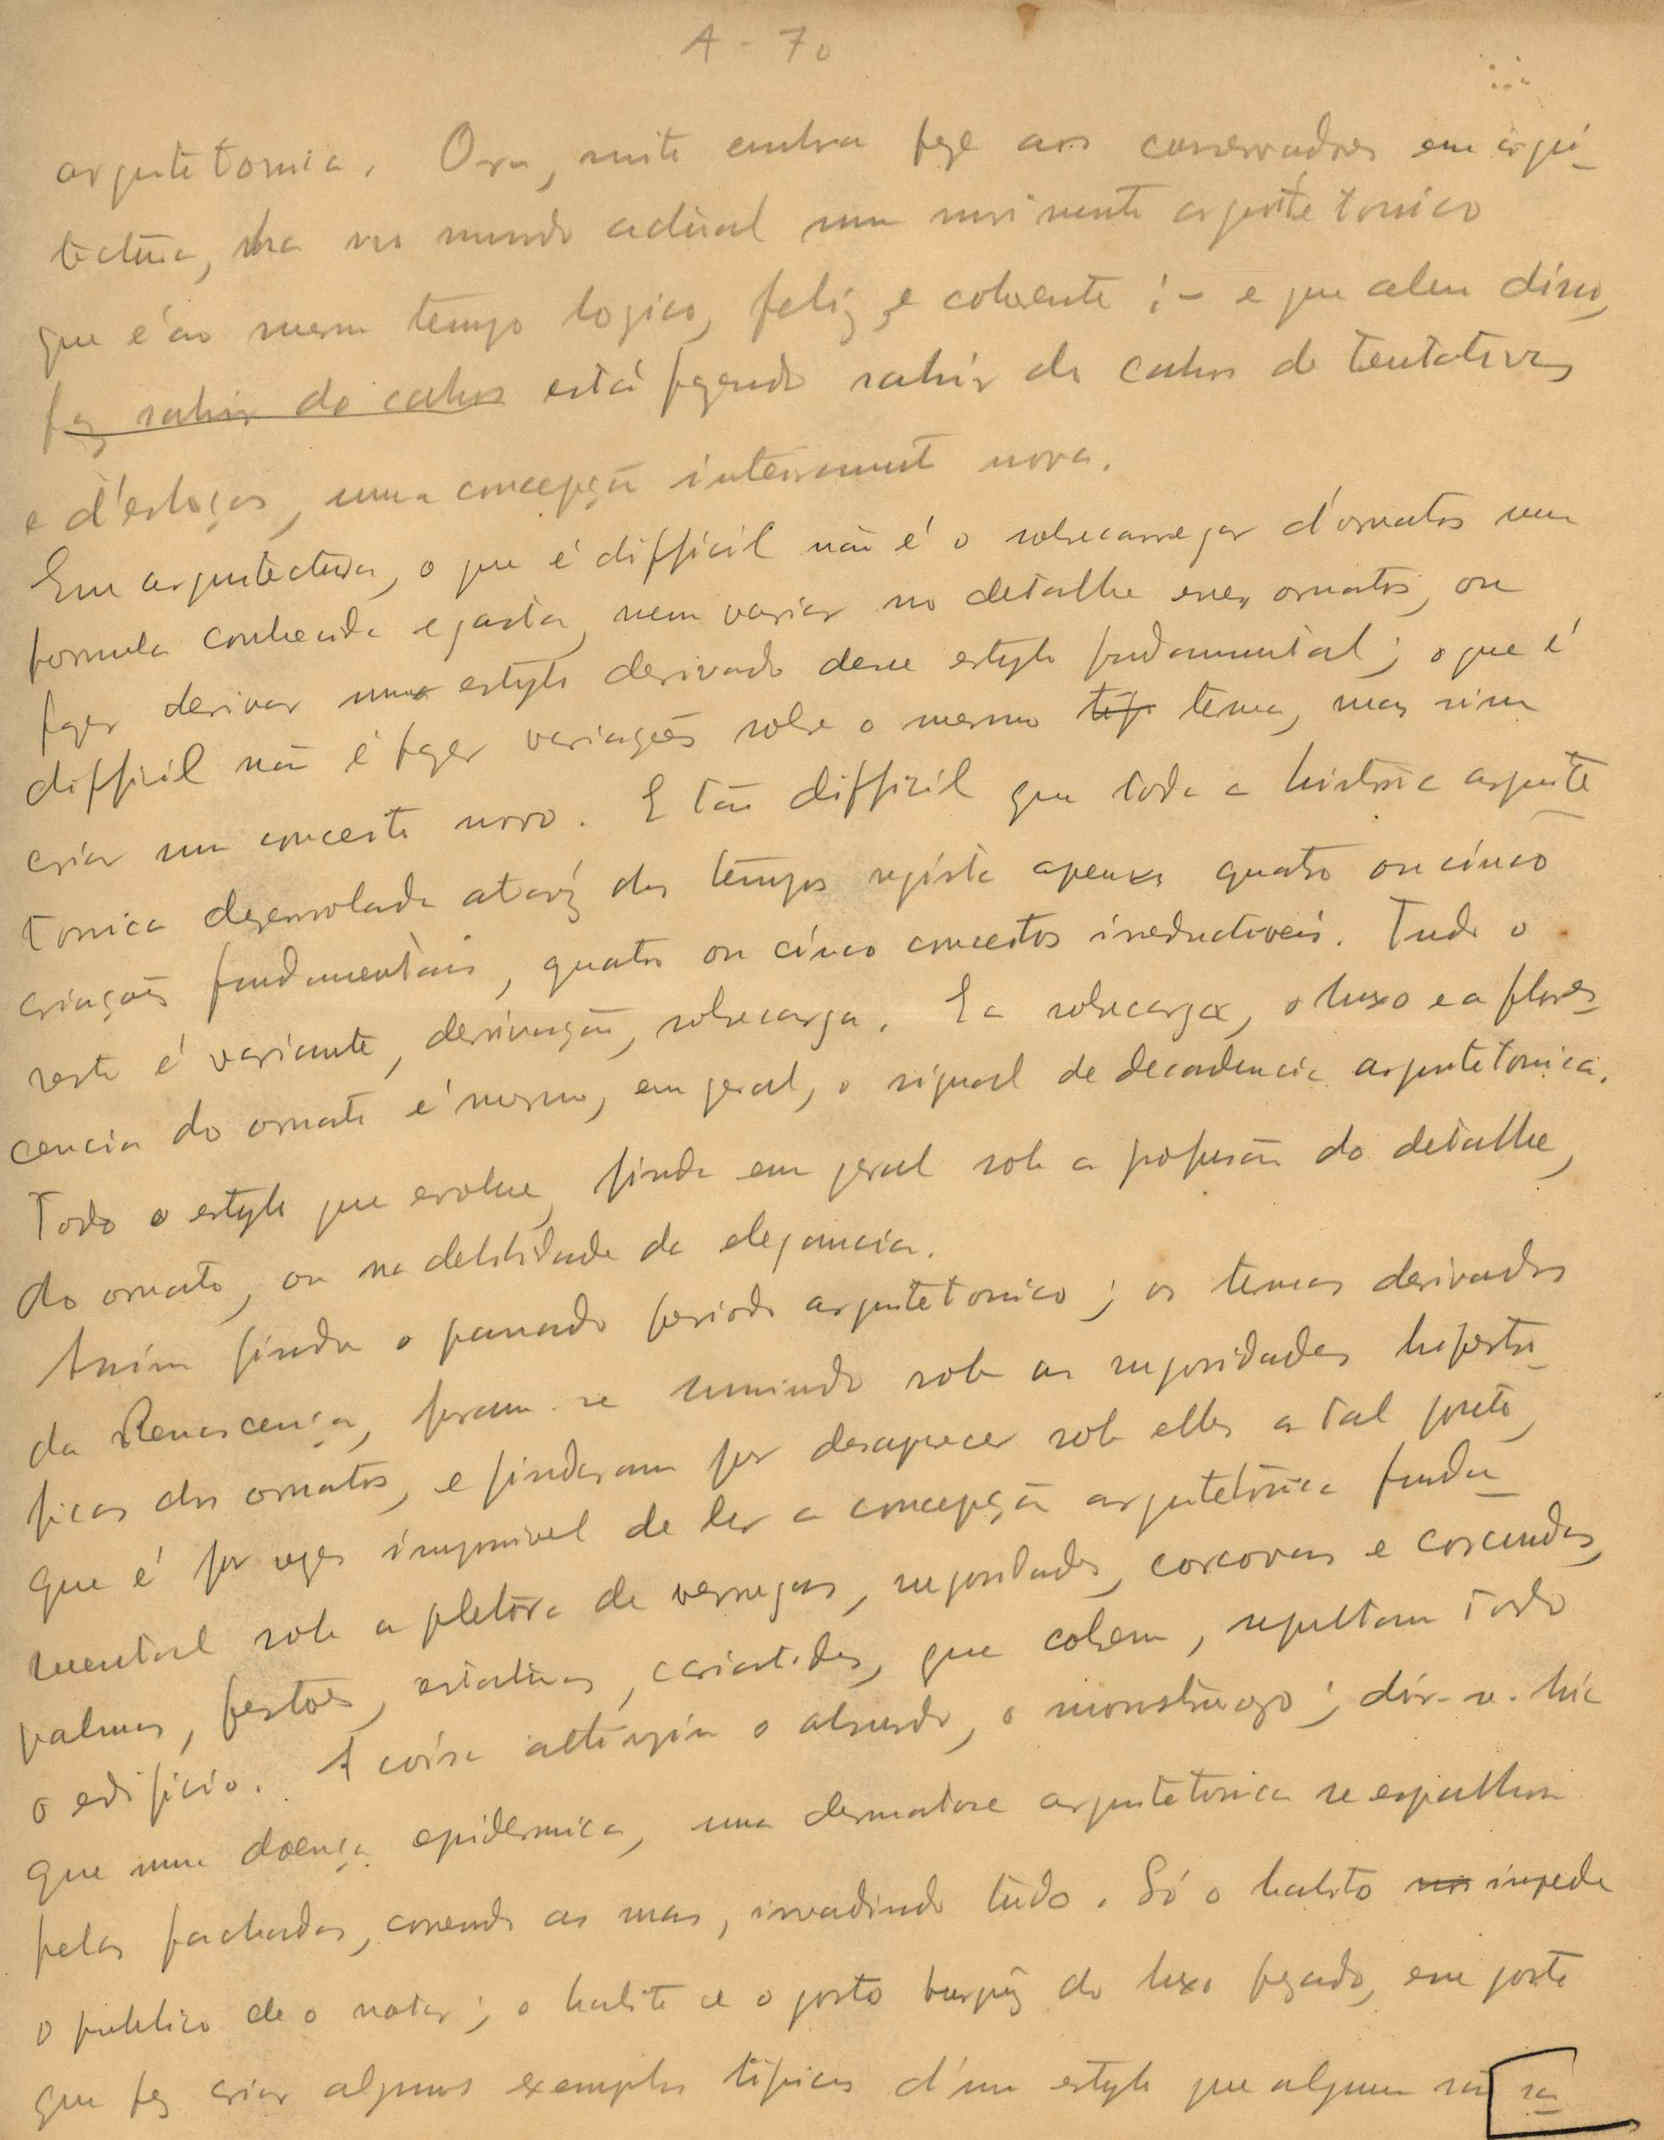 A - 70
arquitetonica. Ora, muito embora peze aos conservadores em arqui-
tectura, ha no mundo actual um movimento arquitetonico
que é ao mesmo tempo logico, feliz, e coherente; - e que alem disso,
fez sahir do cahos está fazendo sahir do cahos de tentativas
e d'esboços, uma concepção inteiramente nova.
Em arquitectura, o que é difficil não é o sobrecarregar d'ornatos uma
formula conhecida e gasta, nem variar no detalhe esses ornatos, ou
fazer derivar um estylo derivado desse estylo fundamental; o que é
difficil não é fazer variações sobre o mesmo tema, mas sim
criar um conceito novo. E tão difficil que toda a historia arquite
tonica desenrolada atravéz dos tempos regista apenas quatro ou cinco
criações fundamentais, quatro ou cinco conceitos irreductiveis. Tudo o
resto é variante, derivação, sobrecarga. E a sobrecarga, o luxo e a flores-
cencia do ornato é mesmo, em geral, o signal de decadencia arquitetonica.
Todo o estylo que evolue, finda em geral sob a profusão do detalhe,
do ornato, ou na debilidade da elegancia.
Assim findou o passado periodo arquitetonico; os temas derivados
da Renascença, foram-se sumindo sob as rugosidades hipertro-
ficas dos ornatos, e findaram por desaparecer sob elles a tal ponto,
que é por vezes impossivel de ler a concepção arquitetónica funda-
mental sob a pletóra de verrugas, rugosidades, corcovas e corcundas,
palmas, festões, estatuas, cariatides, que cobrem, sepultam todo
o edificio. A coisa attingiu o absurdo, o monstruoso; dir-se-hia
que uma doença epidermica, uma dermatose arquitetonica se espalhou
pelas fachadas, correndo as ruas, invadindo tudo. Só o habito impede
o publico de o notar; o habito e o gosto burguêz do luxo pezado, em gosto
que fez criar alguns exemplos tipicos d'um estylo que alguem